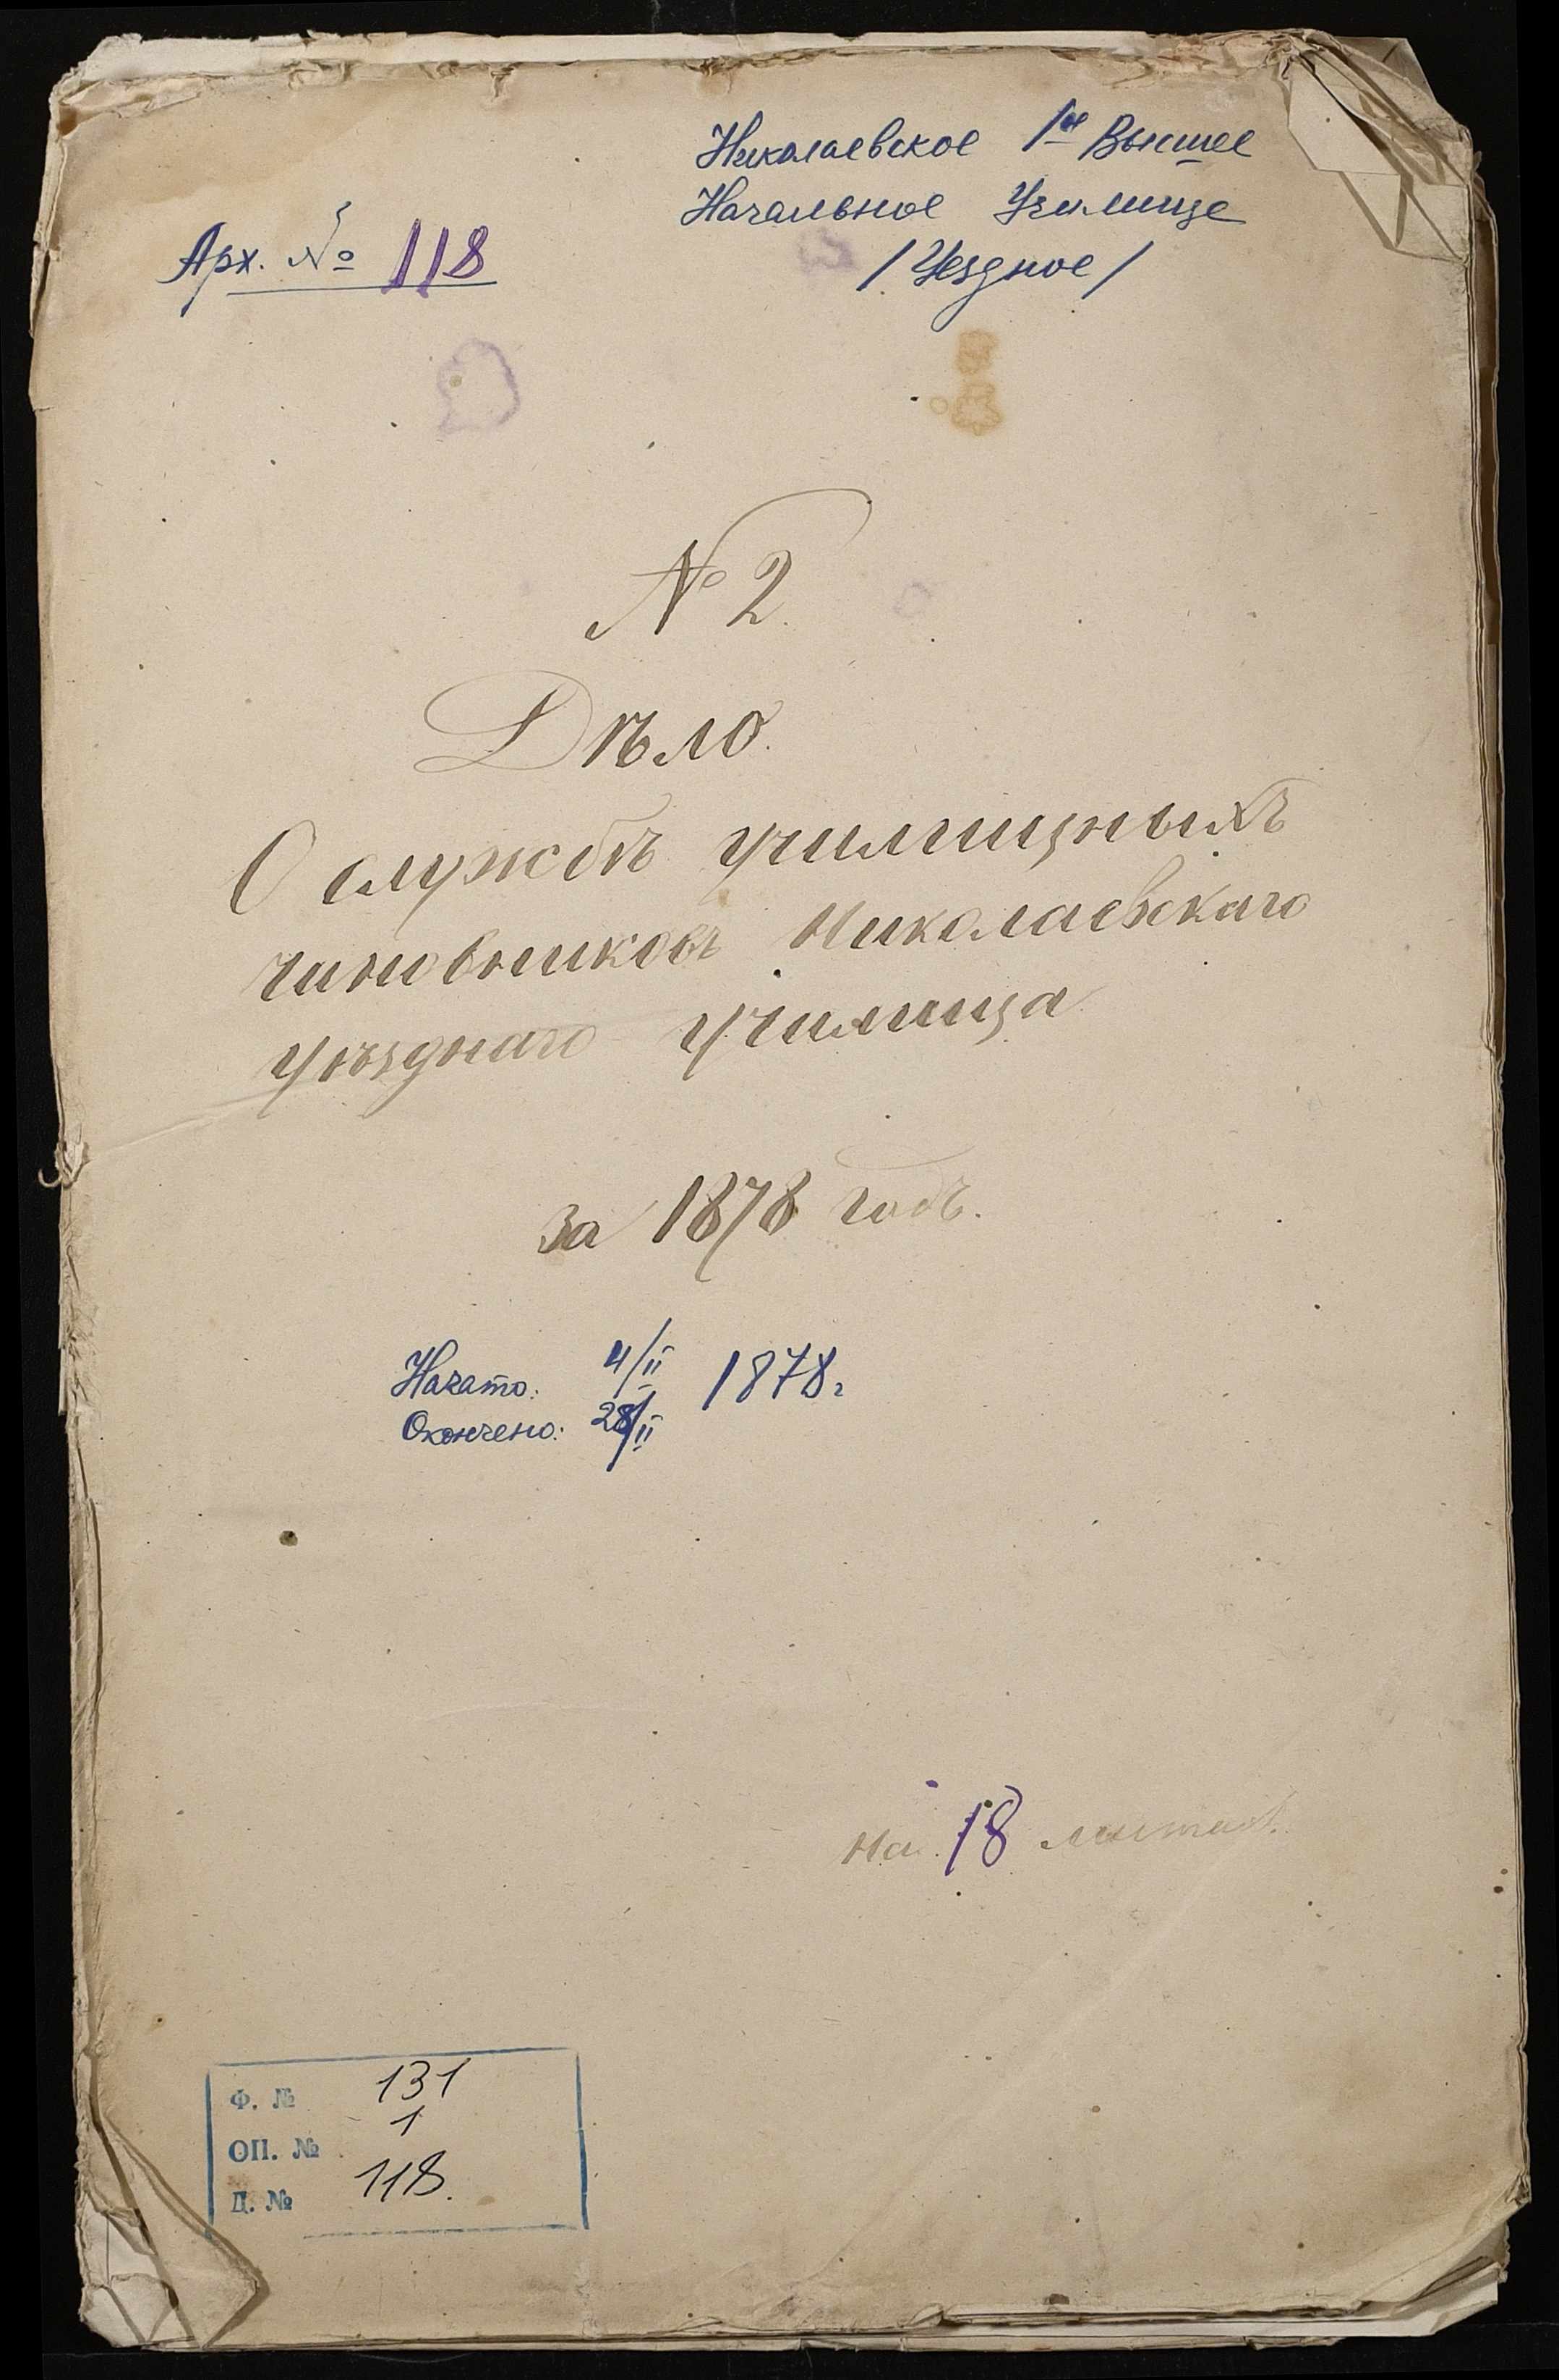 Николаевское 1е Высшее
Начальное Училище
/Уездное/
Арх. № 118
№ 2.
Дѣло.
О службѣ училищныхъ
чиновниковъ Николаевскаго
уѣзднаго училища
за 1878 годъ.
Начато: 4/II 1878г
Окончено: 28/II
На 18 листах.
Ф. № 131
ОП. № 1
Д. № 118.